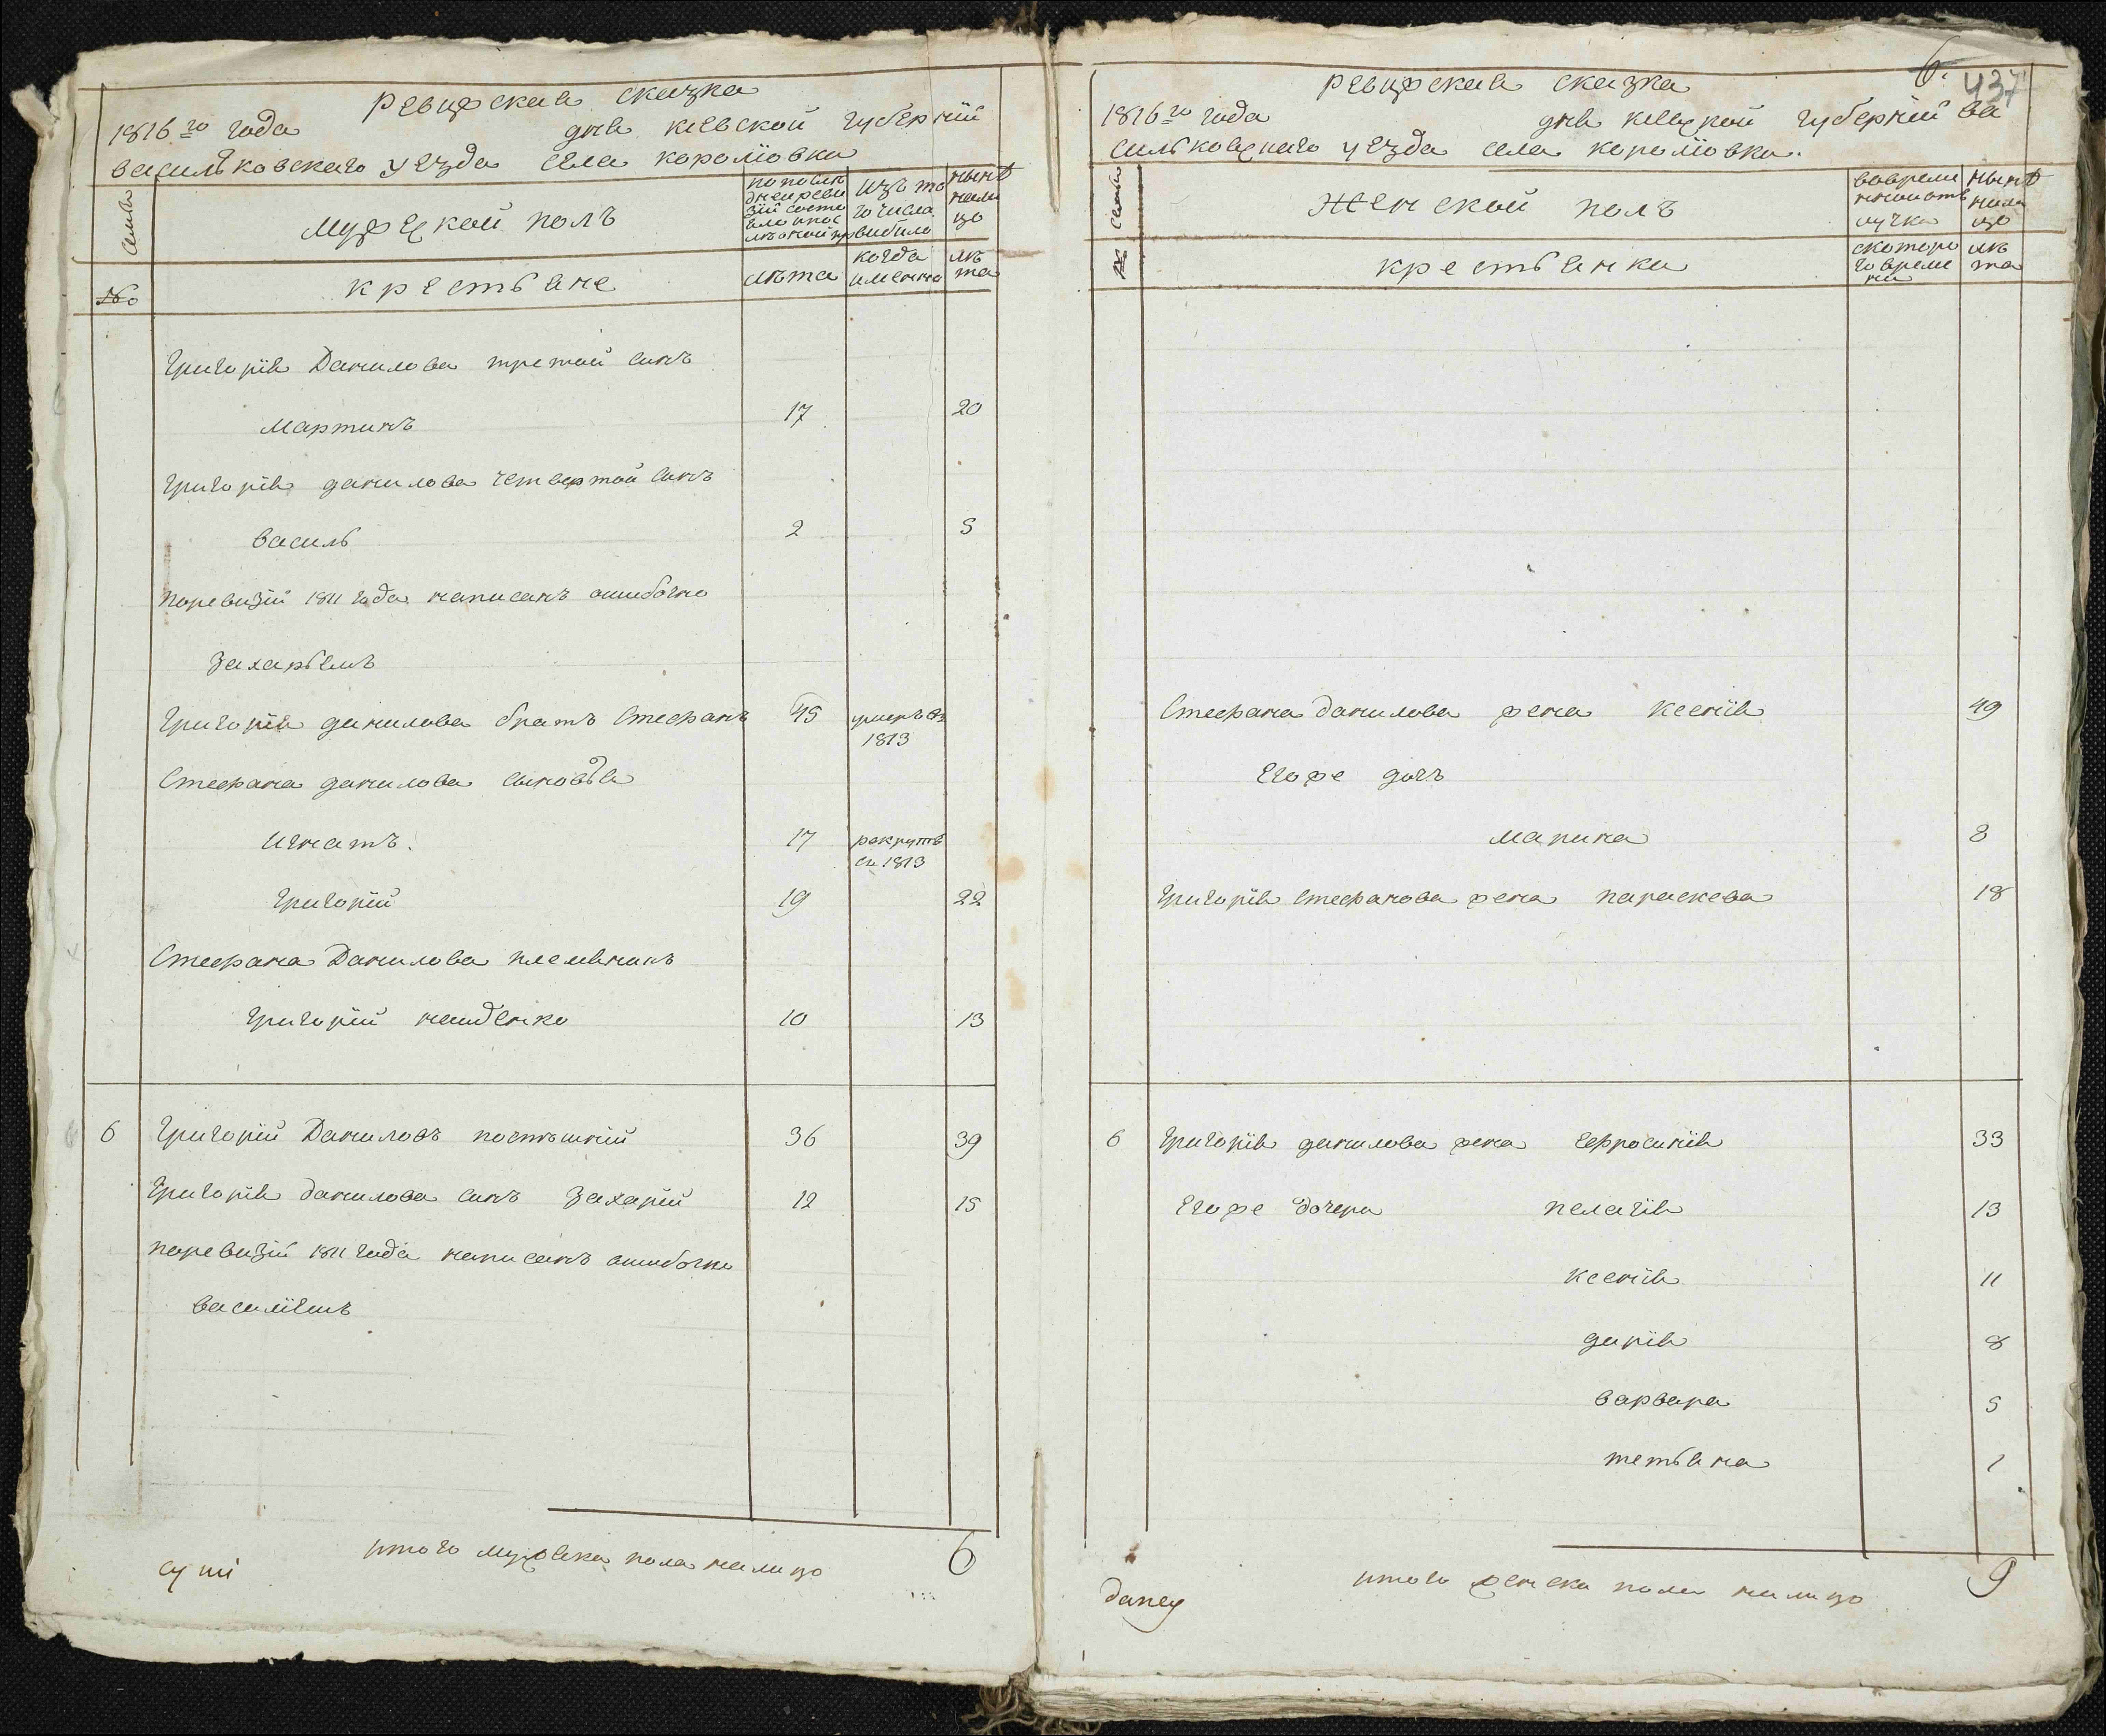 Ревизская сказка
1816го года дня киевской губерній
васильковскаго уезда села королювки
семьи
мужеской полъ
по последней ревизіи состояло
изъ того числа выбыло
ныне налицо
№
крестьяне
лѣта
когда именно
лѣта
Григорія Данилова третой синъ
мартинъ 17 20
Григорія данилова четвертой синъ
василь 2 5
поревизіи 1811 года написанъ ошибочно
захарыемъ
Григорія данилова братъ Стефанъ 45 умеръ въ 1813
Стефана данилова сыновья
игнатъ. 17 рекрутъ в 1813
Григорій 19 22
Стефана Данилова племянникъ
Григорій 10 13
6 Григорій Даниловъ 36 39
Григорія данилова синъ Захарій 12 15
поревизіи 1811 года написанъ ошибочно
василіемъ
итого мужеска пола налицо 6
6. 437
Ревизская сказка
1816го года дня киевской губерній ва
сильковскаго уезда села королювки.
семьи
женской полъ
вовремянной отлучки
ныне налицо
№
крестьянки
скоторого времени
лѣта
Стефана данилова жена ксенія 49
Егоже дочъ
марина 8
Григорія Стефанова жена параскева 18
6 Григорія данилова жена Ефросинія 33
Егоже дочери пелагія 13
ксенія 11
дарія 8
варвара 5
тетьяна 1
итого женска пола налицо 9